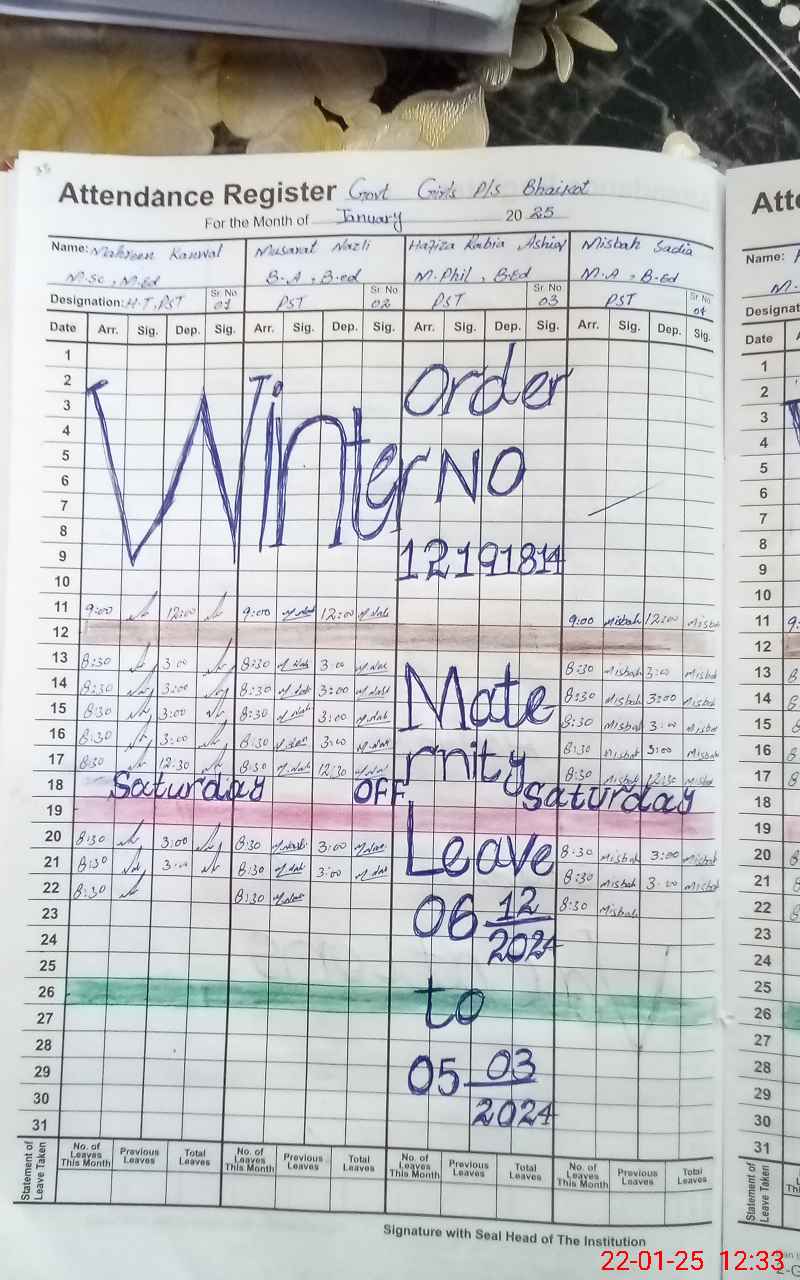 35
Attendance Register Govt Girls P/s Bhaikot
For the Month of January 2025
Name: Mahreen Kanwal Musarat Nazli Hafiza Rabia Ashiq Misbah Sadia
M.Sc, M.Ed B.A, B.ed M.Phil, B.Ed M.A, B.Ed
Designation: H.T, PST Sr. No 01 PST Sr. No 02 PST Sr. No 03 PST Sr. No 04
Date Arr. Sig. Dep. Sig. Arr. Sig. Dep. Sig. Arr. Sig. Dep. Sig. Arr. Sig. Dep. Sig.
1
2
3
4
5
6
7
8
9
10
Winter
Order
NO
12191814
11 9:00 12:00 9:00 12:00 9:00 Misbah 12:00 Misbah
12
13 8:30 3:00 8:30 3:00 8:30 Misbah 3:00 Misbah
14 8:30 3:00 8:30 3:00 8:30 Misbah 3:00 Misbah
15 8:30 3:00 8:30 3:00 8:30 Misbah 3:00 Misbah
16 8:30 3:00 8:30 3:00 8:30 Misbah 3:00 Misbah
17 8:30 12:30 8:30 12:30 8:30 Misbah 12:30 Misbah
18 Saturday OFF Saturday
19
20 8:30 3:00 8:30 3:00 8:30 Misbah 3:00 Misbah
21 8:30 3:00 8:30 3:00 8:30 Misbah 3:00 Misbah
22 8:30 8:30 8:30 Misbah
23
24
25
26
27
28
29
30
31
Mate
rnity
Leave
06 12
2024
to
05 03
2024
Statement of Leave Taken
No. of Leaves This Month Previous Leaves Total Leaves No. of Leaves This Month Previous Leaves Total Leaves No. of Leaves This Month Previous Leaves Total Leaves No. of Leaves This Month Previous Leaves Total Leaves
Signature with Seal Head of The Institution
Name:
Date
1
2
3
4
5
6
7
8
9
10
11
12
13
14
15
16
17
18
19
20
21
22
23
24
25
26
27
28
29
30
31
Statement of Leave Taken
22-01-25 12:33